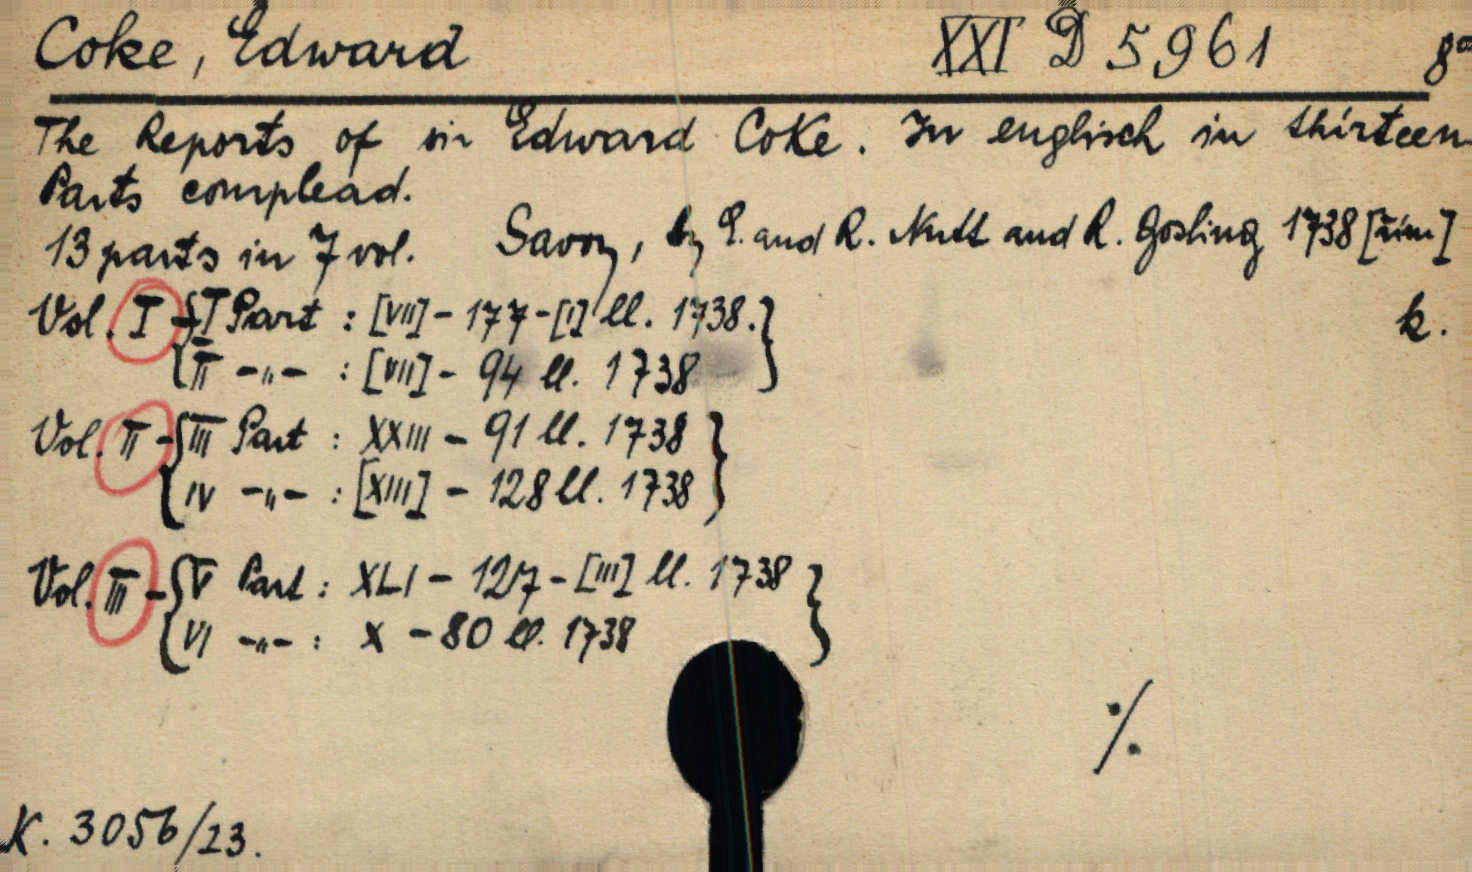 Coke, Edward XXI D 5961 8°
The Reports of sir Edward Coke. In englisch in thirteen
Parts complead.
13 parts in 7 vol. Savoy, by E. and R. Nutt and R. Gosling 1738 [rim]
Vol. I - I Part : [VII] - 177 - [I] ll. 1738. k.
II -„- : [VII] - 94 ll. 1738
Vol. II - III Part : XXIII - 91 ll. 1738
IV -„- : [XIII] - 128 ll. 1738
Vol. III - V Part : XLI - 127 - [III] ll. 1738
VI -„- : X - 80 ll. 1738
./.
K. 3056/23.